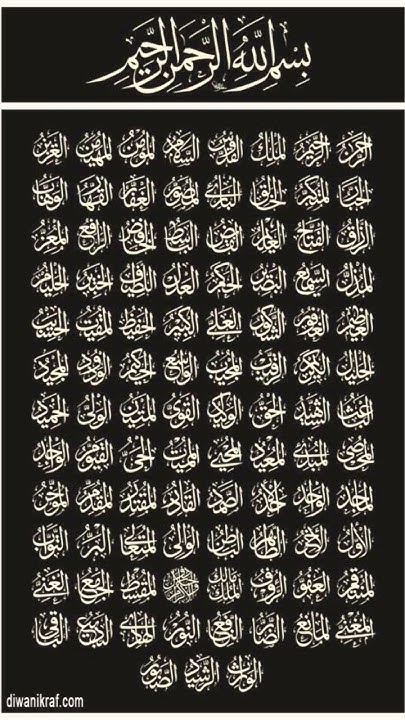 بسم الله الرحمن الرحيم
الرحمن الرحيم الملك القدوس السلام المؤمن المهيمن العزيز
الجبار المتكبر الخالق البارئ المصور الغفار القهار الوهاب
الرزاق الفتاح العليم القابض الباسط الخافض الرافع المعز
المذل السميع البصير الحكم العدل اللطيف الخبير الحليم
العظيم الغفور الشكور العلي الكبير الحفيظ المقيت الحسيب
الجليل الكريم الرقيب المجيب الواسع الحكيم الودود المجيد
الباعث الشهيد الحق الوكيل القوي المتين الولي الحميد
المحصي المبدئ المعيد المحيي المميت الحي القيوم الواجد
الماجد الواحد الأحد الصمد القادر المقتدر المقدم المؤخر
الأول الآخر الظاهر الباطن الوالي المتعالي البر التواب
المنتقم العفو الرؤوف مالك الملك ذو الجلال والإكرام المقسط الجامع الغني
المغني المانع الضار النافع النور الهادي البديع الباقي
الوارث الرشيد الصبور
diwanikraf.com